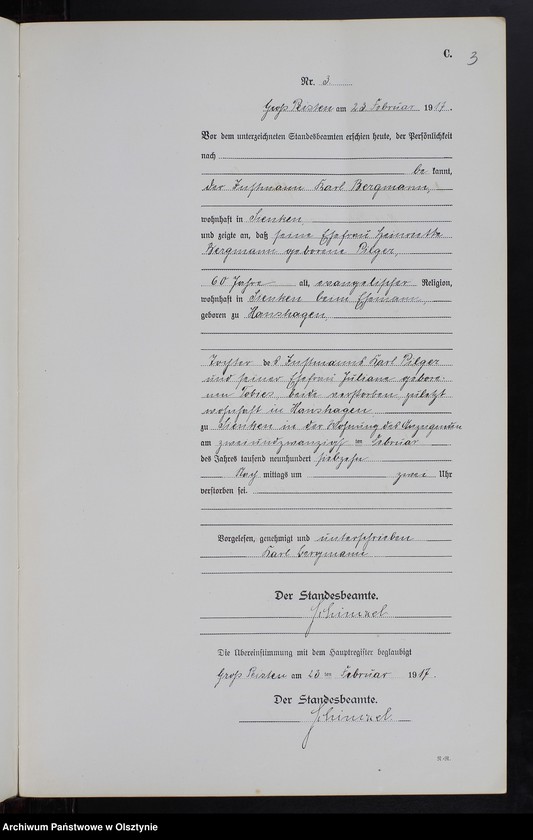 C. 3
Nr. 3
Groß Peisten am 23 Februar 1917.
Vor dem unterzeichneten Standesbeamten erschien heute, der Persönlichkeit
nach
be kannt,
der Instmann Karl Bergmann,
wohnhaft in Sienken,
und zeigte an, daß seine Ehefrau Henriette
Bergmann geborene Pilger,
60 Jahre alt, evangelischer Religion,
wohnhaft in Sienken beim Ehemann,
geboren zu Hanshagen,
Tochter des Instmanns Karl Pilger
und seiner Ehefrau Juliane gebore-
nen Tobies, beide verstorben zuletzt
wohnhaft in Hanshagen
zu Sienken in der Wohnung des Anzeigenden
am zweiundzwanzigsten Februar
des Jahres tausend neunhundert siebzehn
Nach mittags um zwei Uhr
verstorben sei.
Vorgelesen, genehmigt und unterschrieben
Karl Bergmann
Der Standesbeamte.
Schinzel
Die Übereinstimmung mit dem Hauptregister beglaubigt
Groß Peisten am 23 ten Februar 1917.
Der Standesbeamte.
Schinzel
Archiwum Państwowe w Olsztynie